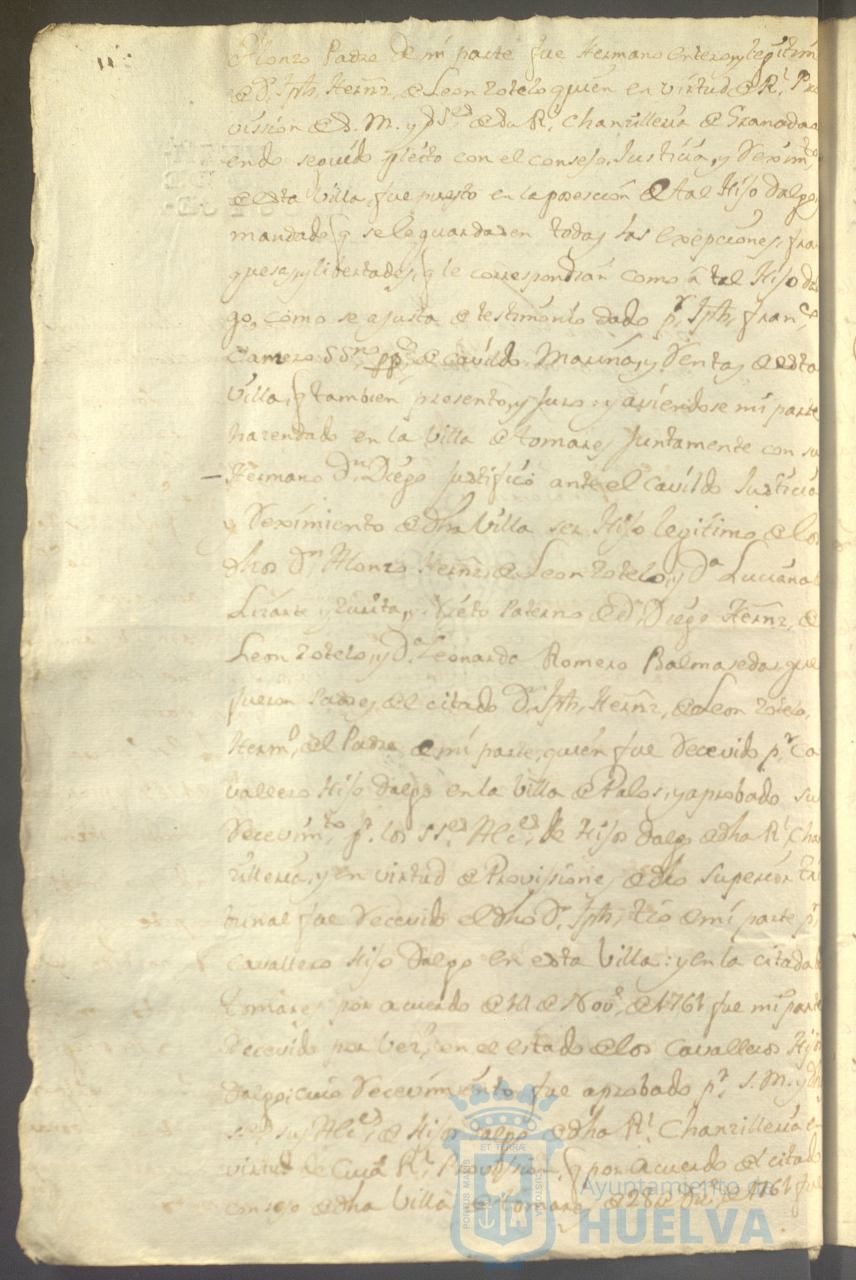 Alonzo Padre de mi parte fue Hermano entero, y legitim
de Dn. Jph, Hernz, de Leon sotelo quien en virtud de Rl. Pro
vission de S. M. y de su Rl. Chanzilleria de Granada
endo seguido pleito con el consejo, Justicia, y Reximto
de esta Villa, fue puesto en la posesion de tal Hijo dalgo,
mandado q se le guardasen todas las exepciones, fran
quesas, y libertades, q le correspondian como a tal Hijo dal
go, como se ajusta de testimonio dado pr. Jph, Franco
Camero SSno ppco de Cavildo Marina, y Rentas de esta
Villa, q tambien presento, y Juro: y aviendose mi parte
hazendado en la Villa de tomares Juntamente con su
Hermano Dn. Diego Justificò ante el Cavildo Justicia
y Reximiento de dha Villa ser Hijo legitimo de los
dhos Dn. Alonzo Hernz, de Leon sotelo, y Da. Luciana
Lizarte y zurita, y Nieto Paterno de Dn. Diego Hernz, de
Leon sotelo, y Da. Leonarda Romero Balmaseda: que
fueron Padres de el citado Dn. Jph, Hernz, de Leon sotelo,
Hermo, de el Padre de mi parte, quien fue Recevido pr. Ca
vallero Hijo dalgo en la Villa de Palos, y aprobado su
Recevimto, pr. los SSes. Alces. de Hijos dalgo de dha Rl. Chan
zilleria, y en virtud de Provissiones de dho Superior tri
bunal fue Recevido el dho Dn. Jph, tio de mi parte pr.
Cavallero Hijo dalgo en esta Villa: y en la citada
tomares por acuerdo de de Nove. de 1761 fue mi parte
Recevido por Vezo, en el estado de los Cavalleros Hijos
dalgo; cuio Recevimiento fue aprobado pr. S. M. y
sus Alces, de Hijos dalgo de dha Rl. Chanzilleria en
virtud de Cuia Rl. Provission, q por acuerdo de el citado
consejo de dha Villa de tomares de 28 de de 1761 fue
PORTUS MARIS ET TERRÆ CUSTODIA
Ayuntamiento de
HUELVA